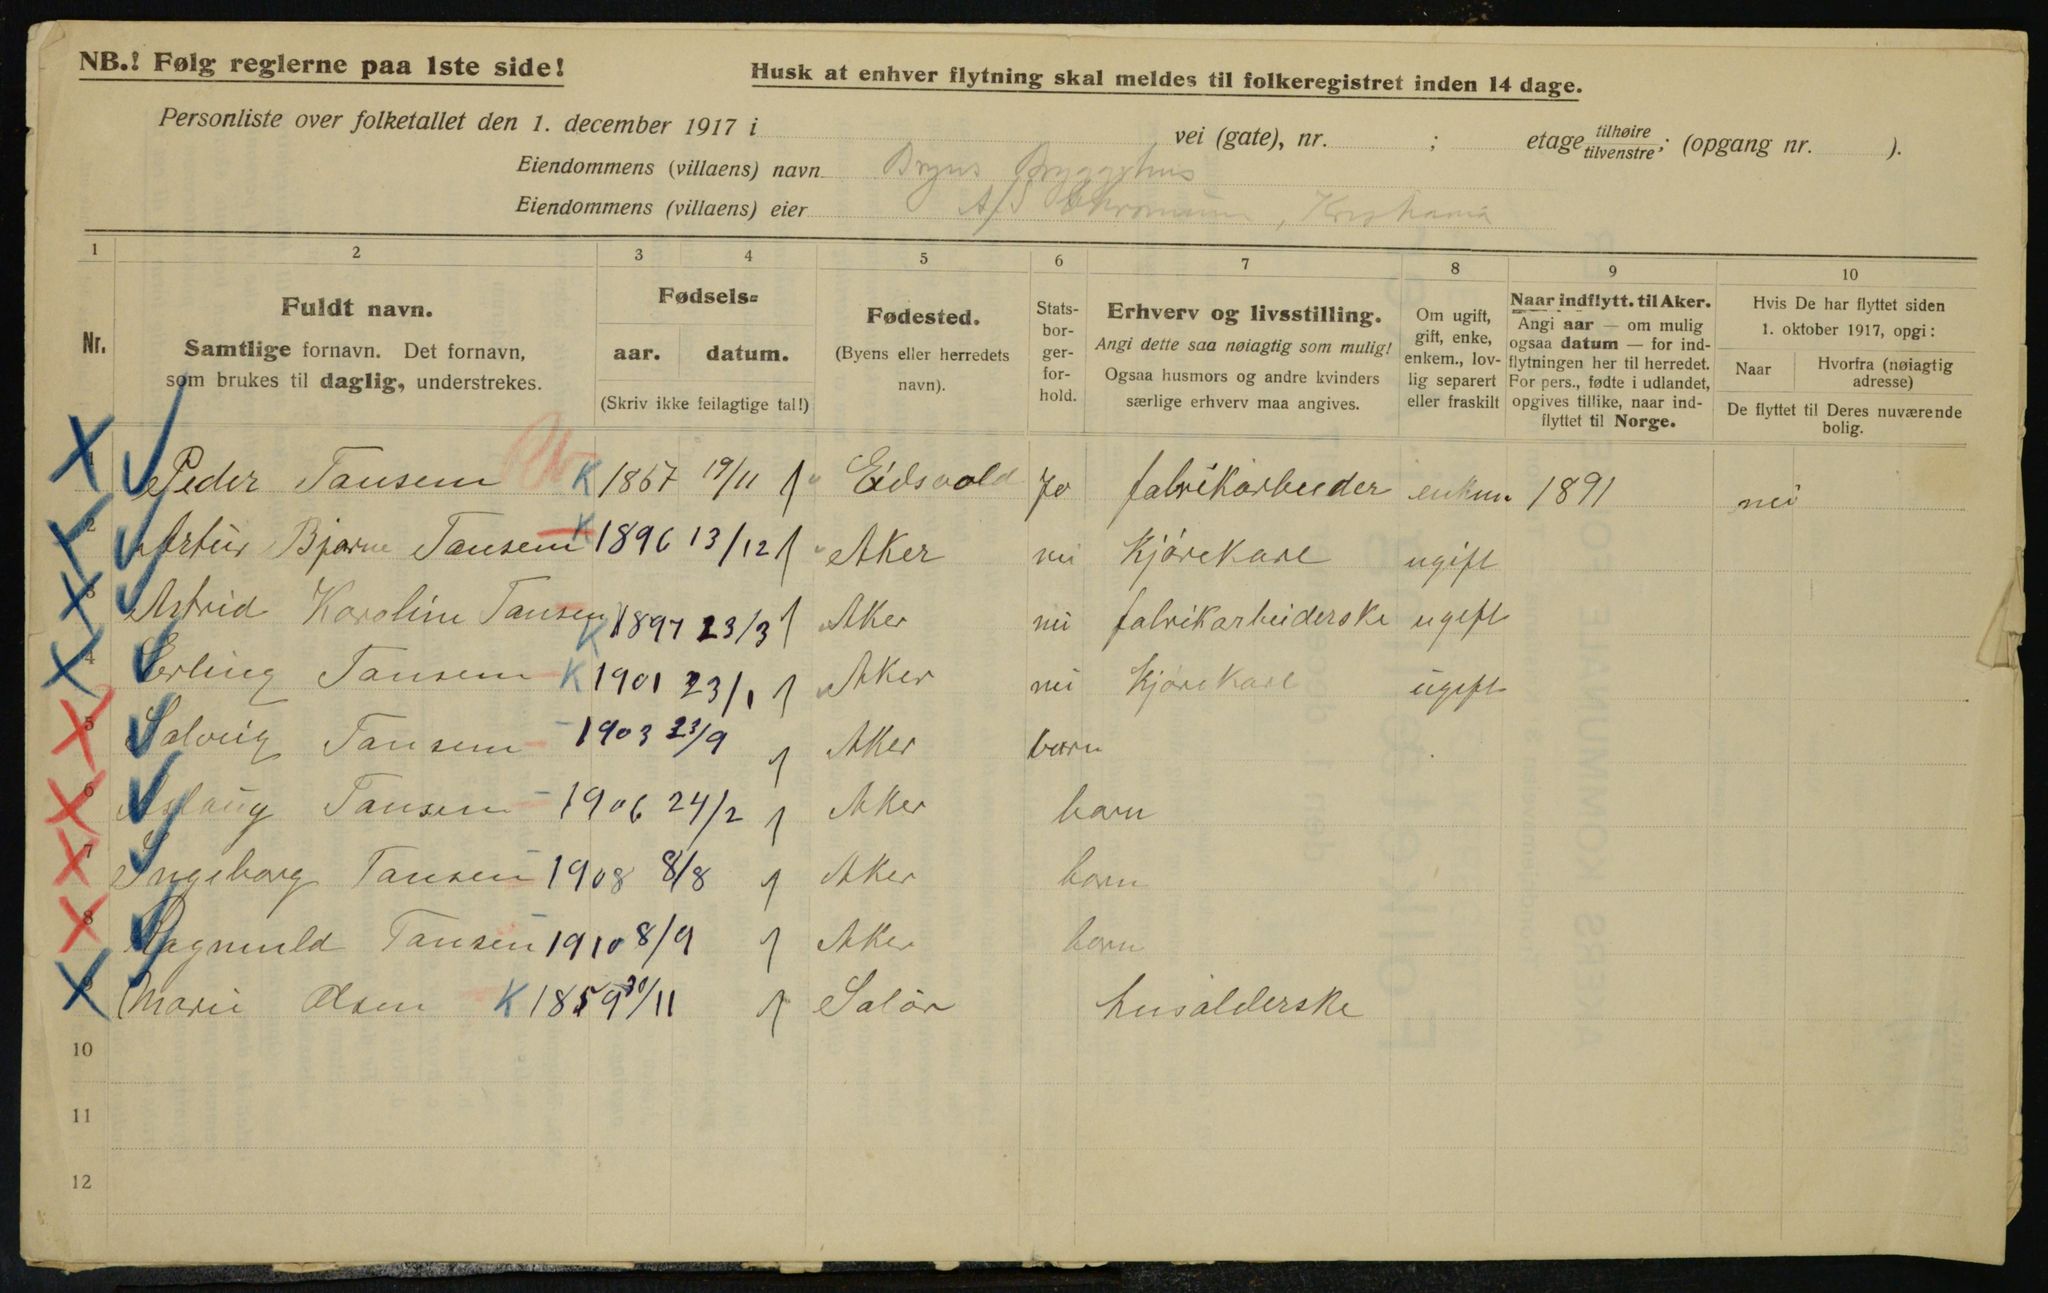 NB.! Følg reglerne paa 1ste side!
Husk at enhver flytning skal meldes til folkeregistret inden 14 dage.
Personliste over folketallet den 1. december 1917 i vei (gate), nr. ; etage tilhøire tilvenstre; (opgang nr. ).
Eiendommens (villaens) navn Bryns Bryggehus
Eiendommens (villaens) eier A/S , Kristiania
1 2 3 4 5 6 7 8 9 10
Nr.
Fuldt navn.
Samtlige fornavn. Det fornavn,
som brukes til daglig, understrekes.
Fødsels=
aar. datum.
(Skriv ikke feilagtige tal!)
Fødested.
(Byens eller herredets
navn).
Stats-
bor-
ger-
for-
hold.
Erhverv og livsstilling.
Angi dette saa nøiagtig som mulig!
Ogsaa husmors og andre kvinders
særlige erhverv maa angives.
Om ugift,
gift, enke,
enkem., lov-
lig separert
eller fraskilt
Naar indflytt. til Aker.
Angi aar — om mulig
ogsaa datum — for ind-
flytningen her til herredet.
For pers., fødte i udlandet,
opgives tillike, naar ind-
flyttet til Norge.
Hvis De har flyttet siden
1. oktober 1917, opgi:
Naar Hvorfra (nøiagtig
adresse)
De flyttet til Deres nuværende
bolig.
1 Peder Tansem K 1867 19/11 Eidsvold Jo fabrikarbeider enkm 1891 nei
2 Artur Bjarne Tansem K 1896 13/12 Aker nei Kjørekarl ugift
3 Astrid Karoline Tansem K 1897 23/3 Aker nei fabrikarbeiderske ugift
4 Erling Tansem K 1901 23/1 Aker nei Kjørekarl ugift
5 Solveig Tansem 1903 23/9 Aker barn
6 Aslaug Tansem 1906 24/2 Aker barn
7 Ingeborg Tansem 1908 8/8 Aker barn
8 Ragnvald Tansem 1910 8/9 Aker barn
9 Marie Olsen K 1859 30/11 Solør husalderske
10
11
12